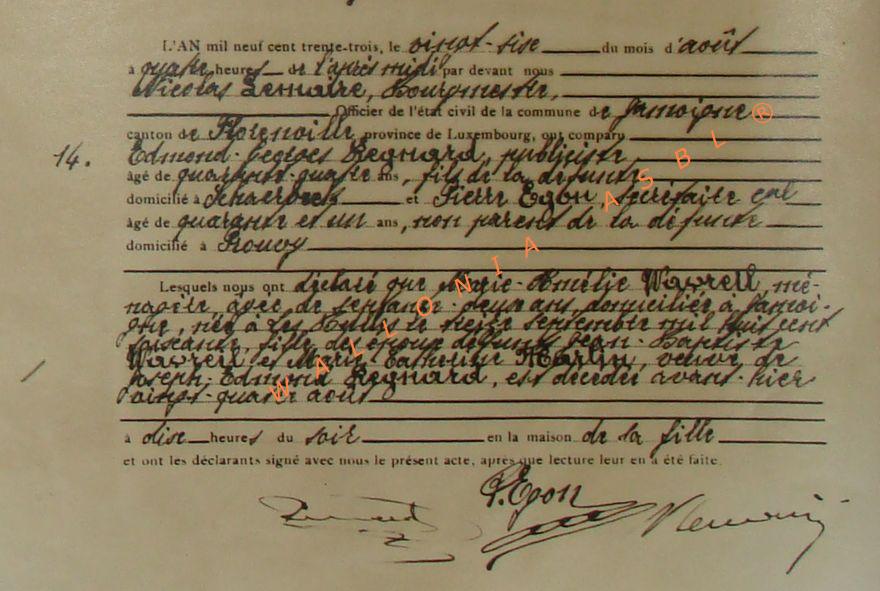 L'AN mil neuf cent trente-trois, le vingt-six du mois d'août
à quatre heures de l'après midi par devant nous
Nicolas Lemaire, Bourgmestre,
Officier de l'état civil de la commune de Jamoigne
canton de Florenville province de Luxembourg, ont comparu
14. Edmond-Georges Regnard, publiciste,
âgé de quarante-quatre ans, fils de la défunte
domicilié à Schaerbeek et Pierre Egon, secrétaire cal
âgé de quarante et un ans, non parent de la défunte
domicilié à Rouvoy
Lesquels nous ont déclaré que Marie-Amélie Wavreil, mé-
nagère, âgée de septante-deux ans, domiciliée à Jamoi-
gne, née à Les Bulles le septembre mil huit cent
soixante, fille de époux défunts Jean-Baptiste
Wavreil et Marie Catherine Martin, veuve de
Joseph-Edmond Regnard, est décédée avant-hier
vingt-quatre août
à dix heures du soir en la maison de sa fille
et ont les déclarants signé avec nous le présent acte, après que lecture leur en a été faite.
P. Egon
WALLONIA ASBL ®